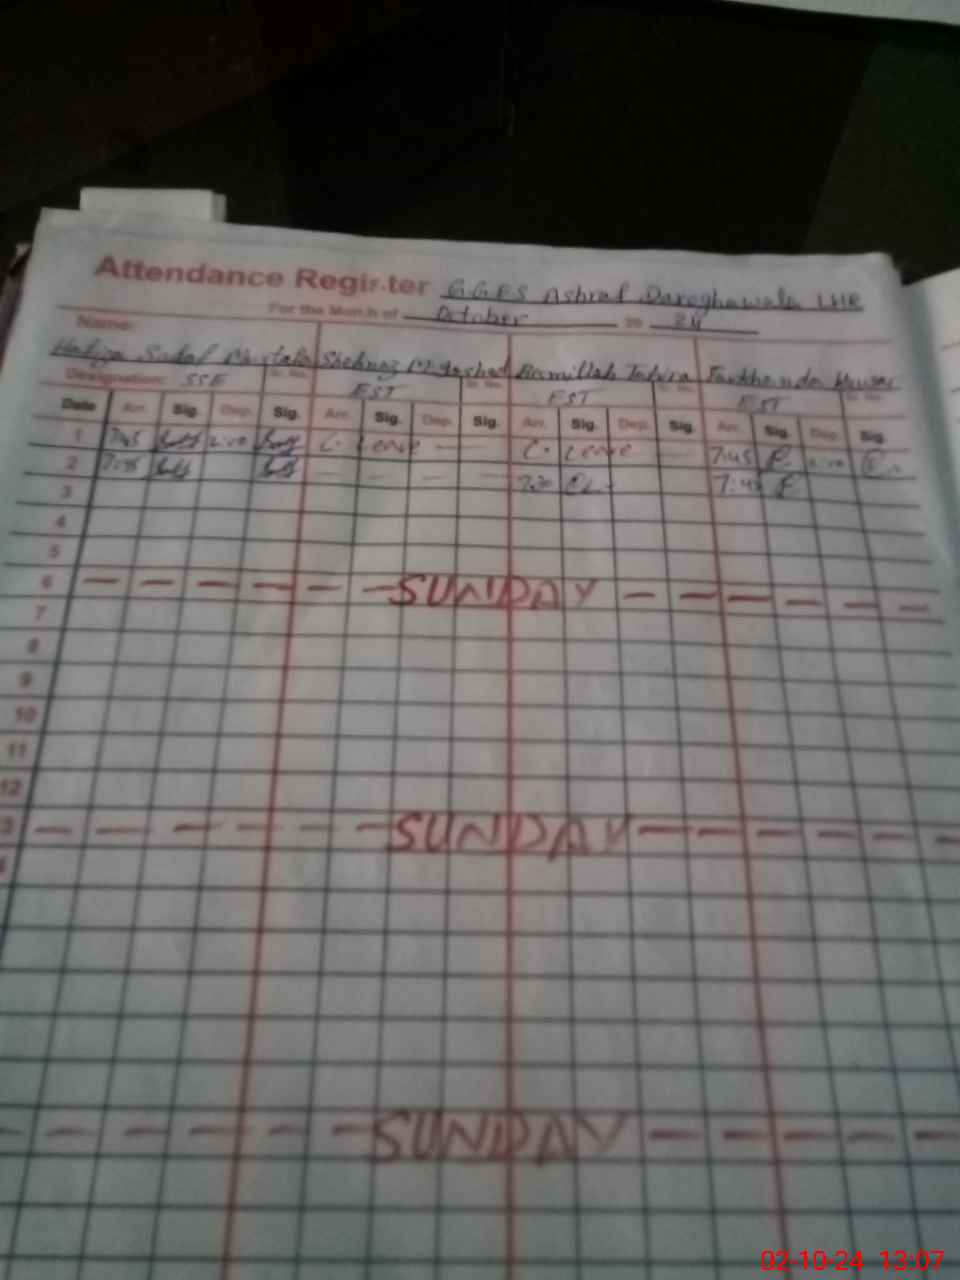 Attendance Register G.G.E.S Ashraf Daroghawala LHR
For the Month of October 20 24
Name:
Shehnaz M Arshad Bismillah Tahira Farkhanda
Designation: SSE Sr. No. EST Sr. No. EST Sr. No. EST Sr. No.
Date Arr. Sig. Dep. Sig. Arr. Sig. Dep. Sig. Arr. Sig. Dep. Sig. Arr. Sig. Dep. Sig.
1 7:45 2:00 C. Leave — C. Leave — 7:45 2:00
2 — — — 7:30 7:45
3
4
5
6 — — — — — — SUNDAY — — — — — —
7
8
9
10
11
12
3 — — — — — — SUNDAY — — — — — —
— — — — — — SUNDAY — — — — —
02-10-24 13:07